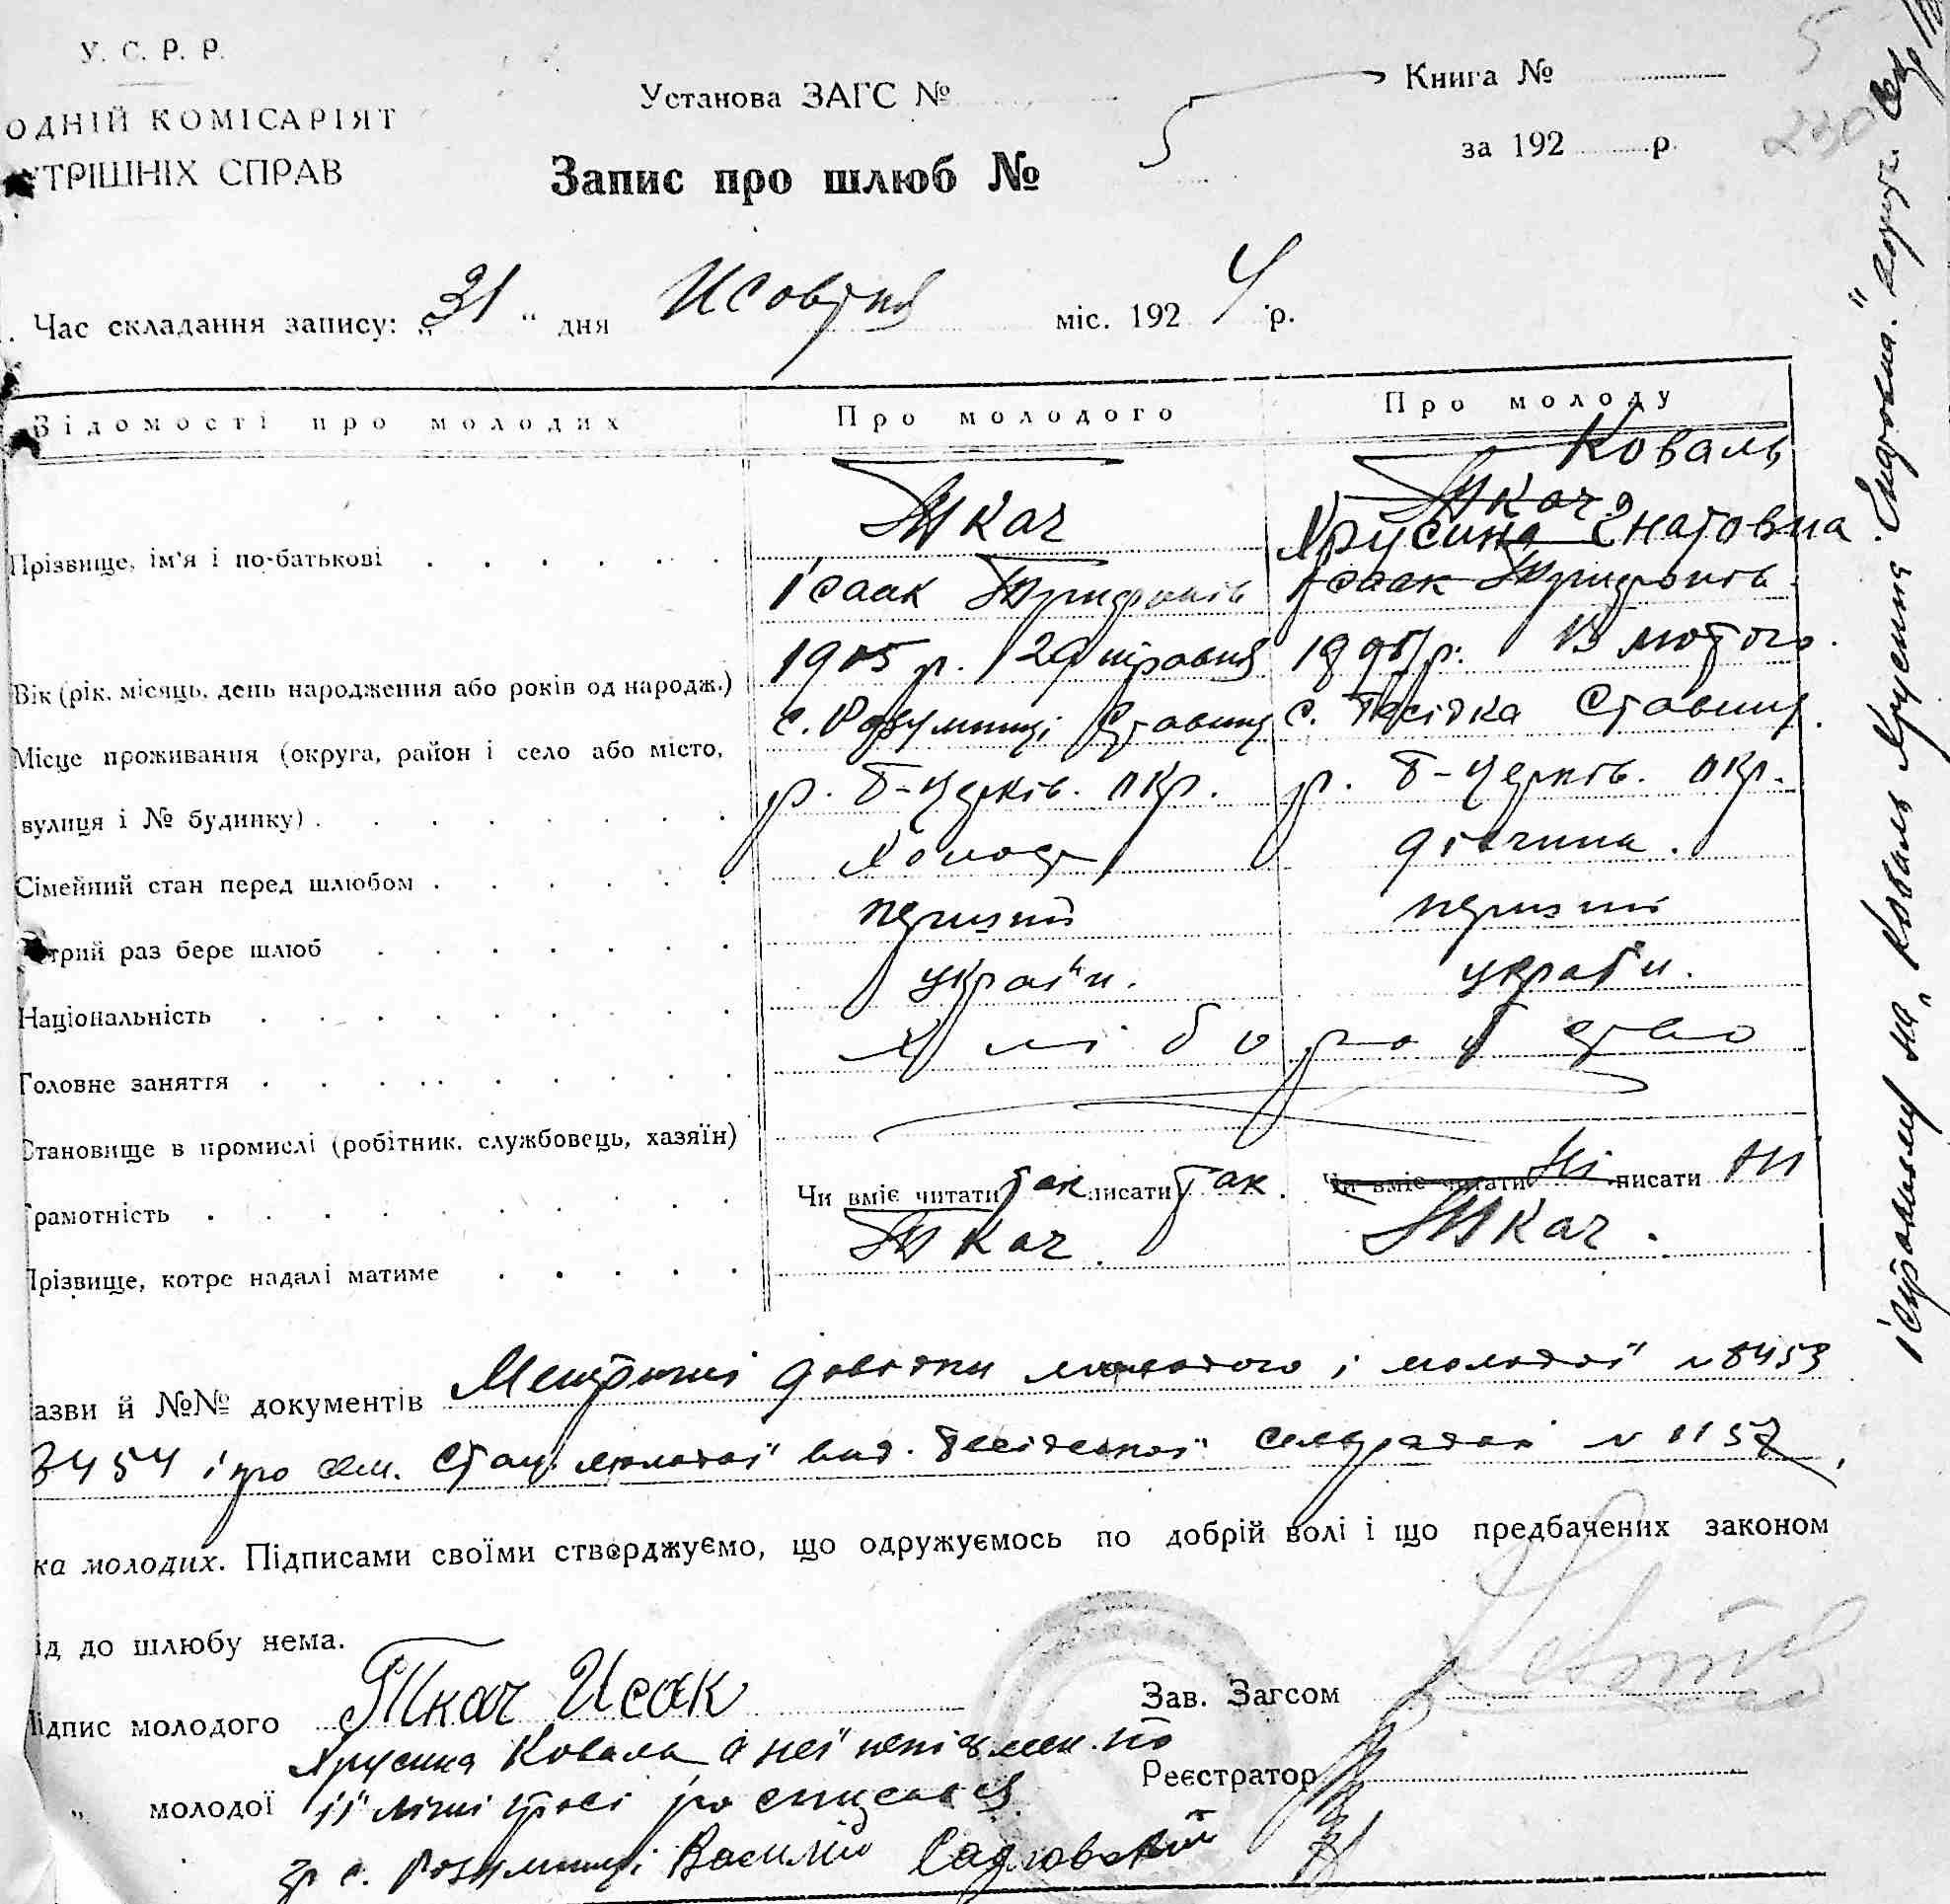 У. С. Р. Р.
ОДНІЙ КОМІСАРІЯТ
УТРІШНІХ СПРАВ
Установа ЗАГС №
Книга №
за 192 р.
5
230
Запис про шлюб № 5
Час складання запису: „31“ дня Жовтня міс. 1924 р.
Відомості про молодих
Про молодого
Про молоду
Прізвище, ім'я і по-батькові
Ткач
Ісаак Трифонів
Коваль
Ткач
Хрусина Гнатовна
Ісаак Трифонів
Вік (рік, місяць, день народження або років од народж.)
1905 р. 29 травня
13 лютого
Місце проживання (округа, район і село або місто,
с. Розумниці Ставищ
с. Бесідка Ставищ.
вулиця і № будинку)
р. Б-Церків. окр.
р. Б-Церків. окр.
Сімейний стан перед шлюбом
холост
дівчина.
трий раз бере шлюб
перший
перший
Національність
україн.
україн.
Головне заняття
хліборобство
Становище в промислі (робітник, службовець, хазяїн)
Грамотність
Чи вміє читати так писати так.
Чи вміє читати ні писати ні
Прізвище, котре надалі матиме
Ткач.
Ткач.
азви й №№ документів Метричні довідки молодого і молодої №8453
8454 і про сем. стан молодої вид. Бесідської сельради № 1157
ка молодих. Підписами своїми стверджуємо, що одружуємось по добрій волі і що предбачених законом
ід до шлюбу нема.
Підпис молодого Ткач Исак
Зав. Загсом
Хрусина Коваль а неї неписьмен. по
Реєстратор
„ молодої її лічні прозбі росписався
гр с. Розумниці Василий Садловский
Ісправленому на „Коваль Хрусина Гнатовна“